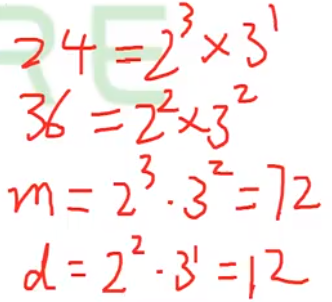 RE
24 = 2³ × 3¹
36 = 2² × 3²
m = 2³ · 3² = 72
d = 2² · 3¹ = 12